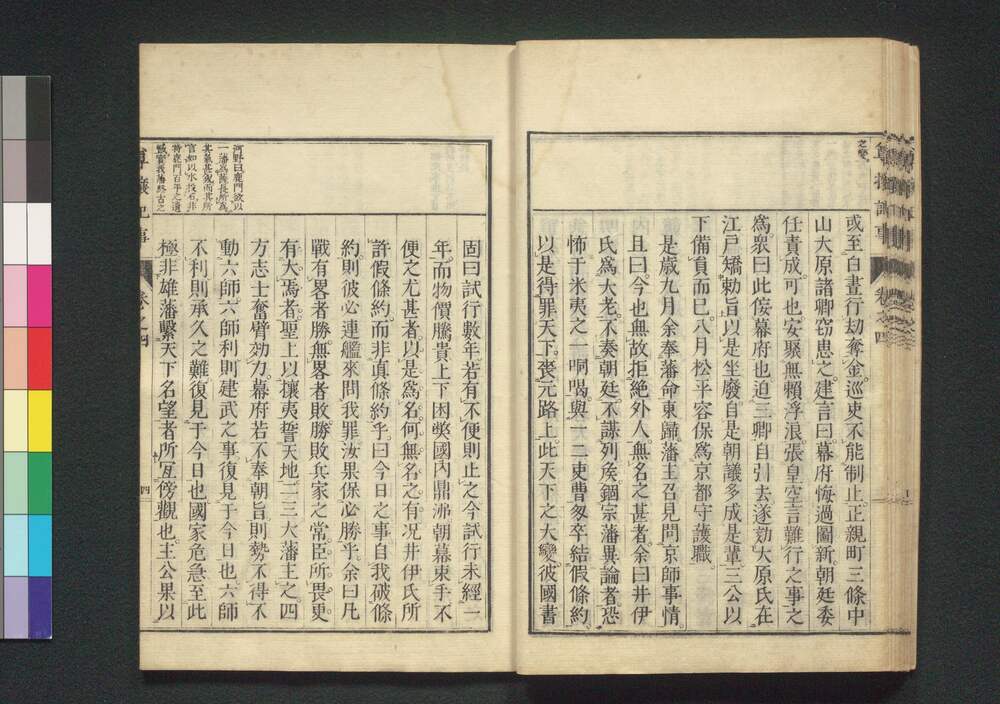 之變
或至白晝行劫奪金巡吏不能制止正親町三條中
山大原諸卿窃思之建言曰幕府悔過圖新朝廷委
任責成可也安聚無賴浮浪張皇空言難行之事之
爲衆曰此侫幕府也迫三卿自引去遂劾大原氏在
江戸矯勅旨以是坐廢自是朝議多成是輩三公以
下備員而已八月松平容保爲京都守護職
是歲九月余奉藩命東歸藩主召見問京師事情
且曰今也無故拒絶外人無名之甚者余曰井伊
氏爲大老不奏朝廷不諜列矦錮宗藩異論者恐
怖于米夷之一哃喝與一二吏曹匆卒結假條約
以是得罪天下喪元路上此天下之大變彼國書
固曰試行數年若有不便則止之今試行未經一
年而物價騰貴上下困弊國內鼎沸朝幕束手不
便之尤甚者以是爲名何無名之有况井伊氏所
許假條約而非眞條約乎曰今日之事自我破條
約則彼必連艦來問我罪汝果保必勝乎余曰凡
戰有畧者勝無畧者敗勝敗兵家之常臣所畏更
有大焉者聖上以攘夷誓天地二三大藩主之四
方志士奮臂効力幕府若不奉朝旨則勢不得不
動六師六師利則建武之事復見于今日也六師
不利則承久之難復見于今日也國家危急至此
極非雄藩繫天下名望者所宜傍觀也主公果以
河野曰鹿門欲以
一藩爲薩長所爲
其氣甚銳而其所
言如以水投石非
特鹿門百平之遺
憾實我藩終古之
尊攘紀事
卷之四
四